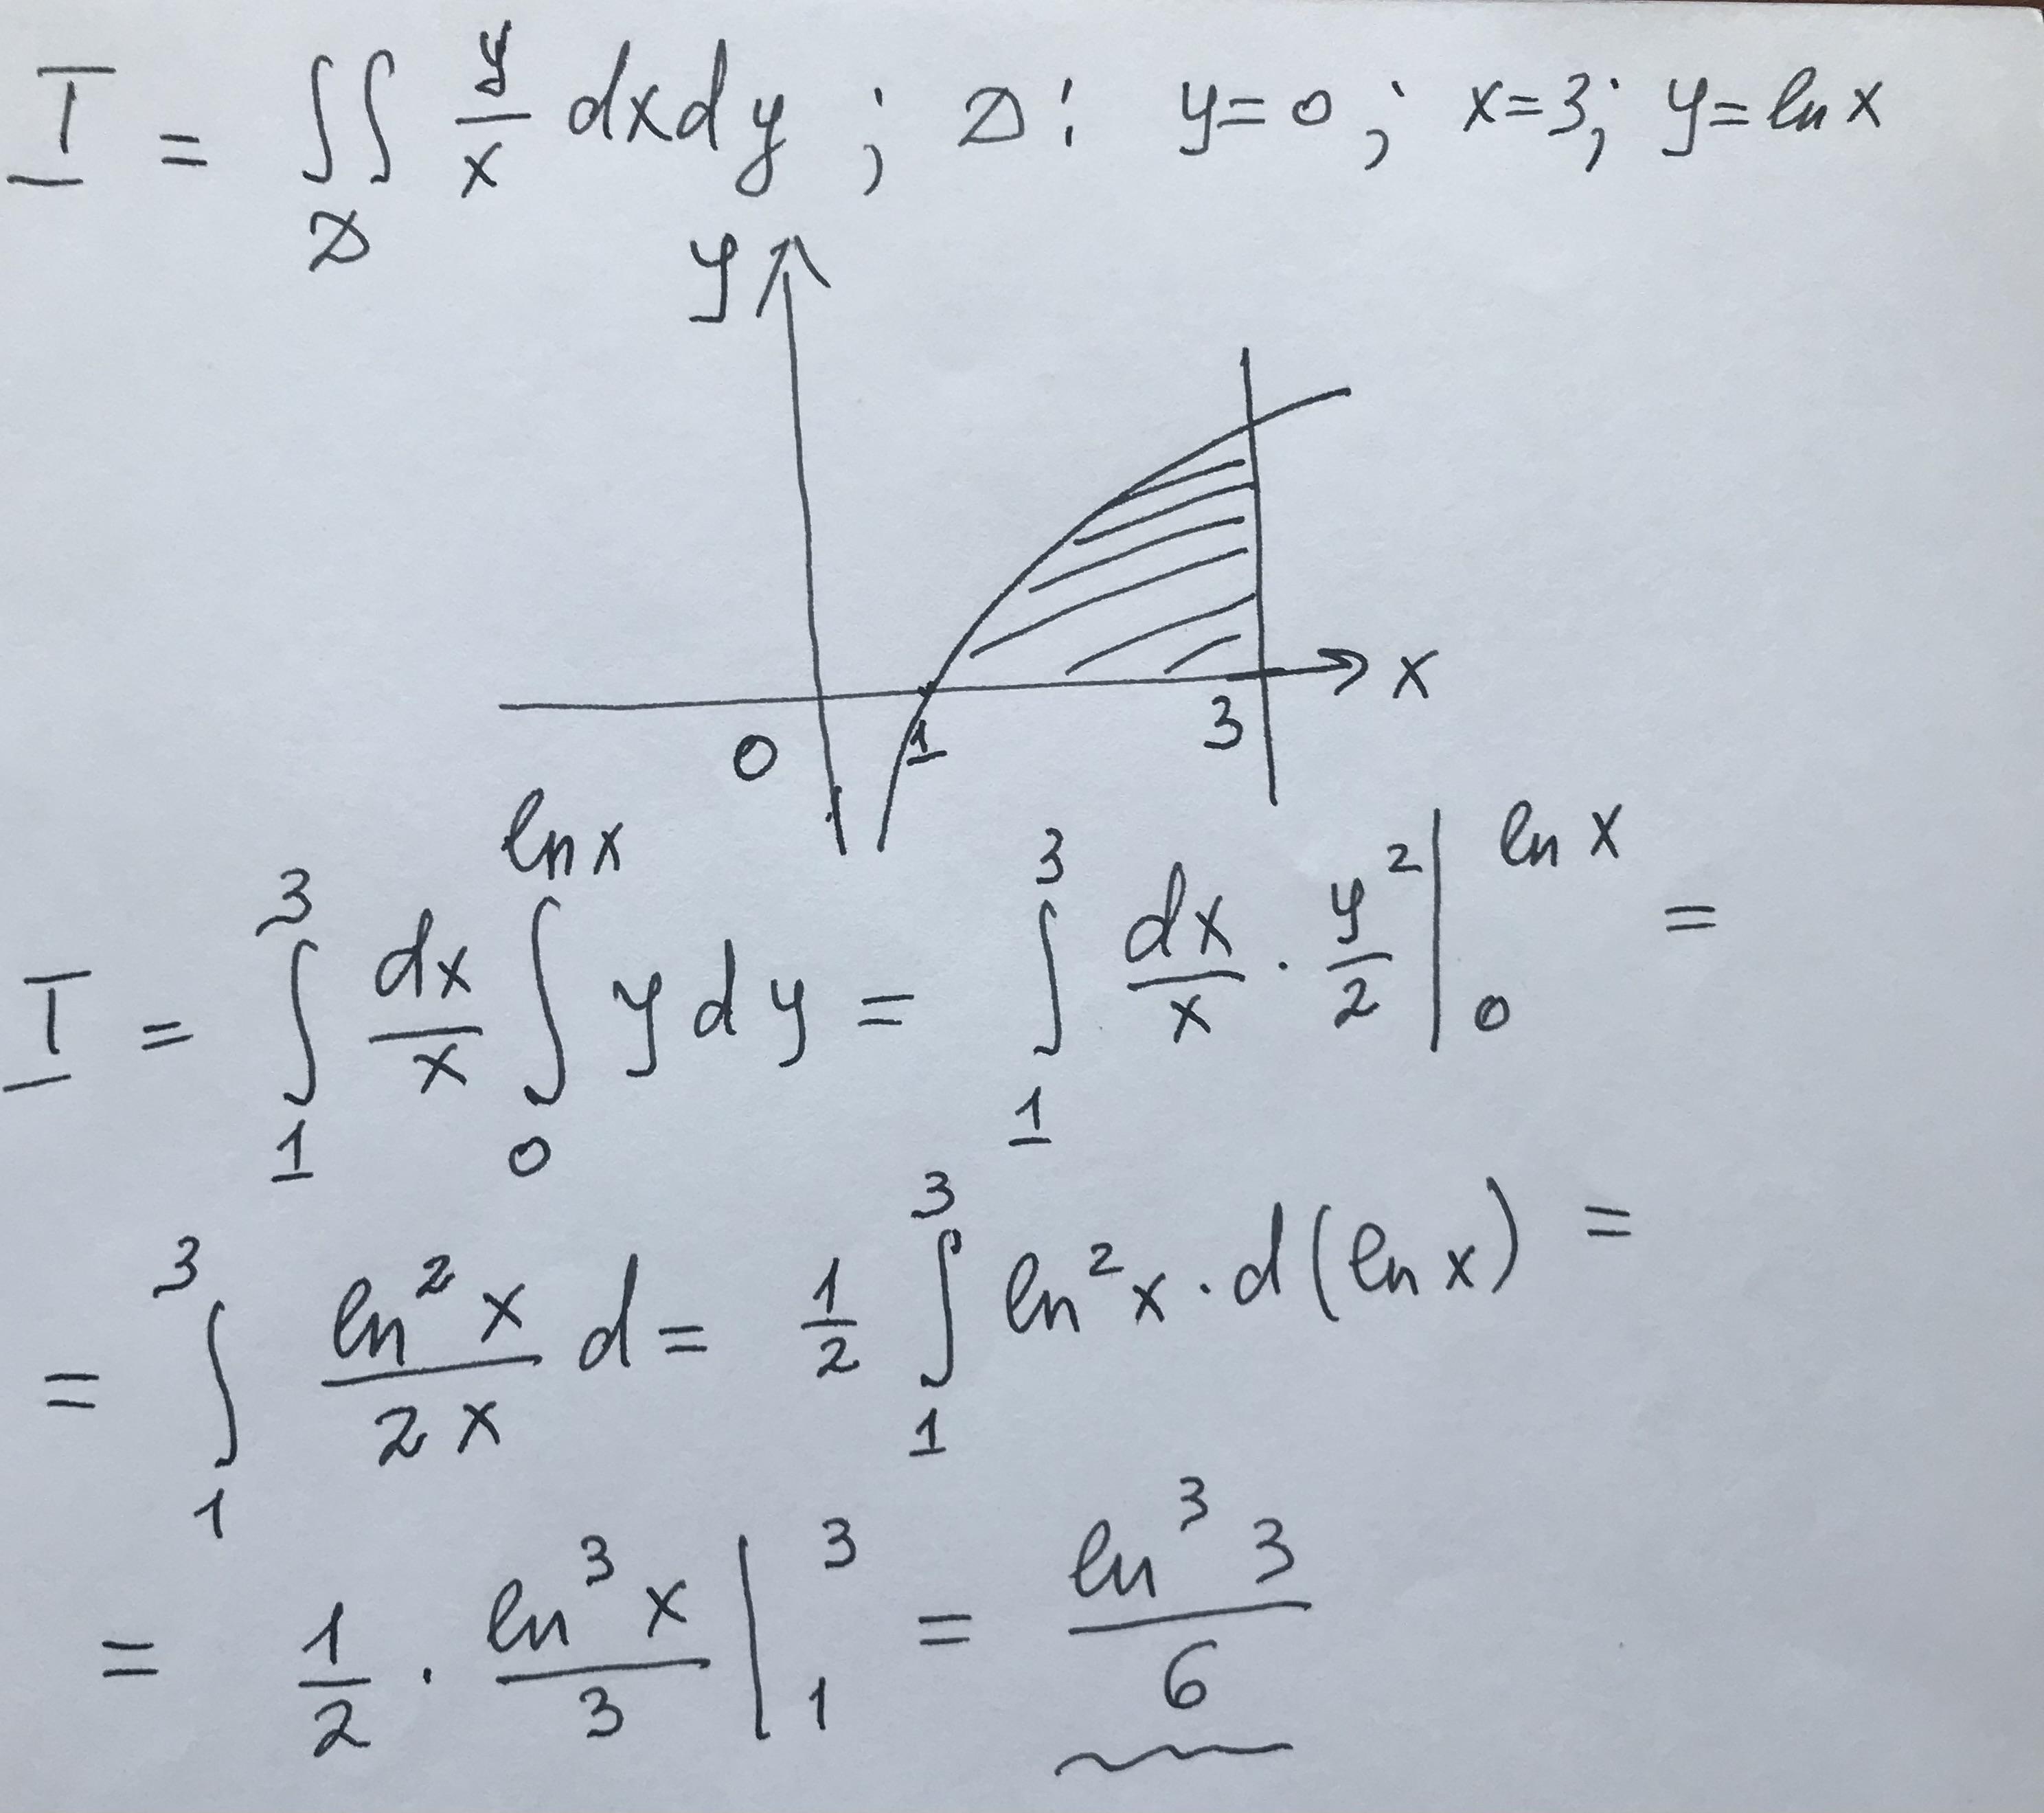 I = ∬_D y/x dxdy ; D: y=0; x=3; y=ln x
y
x
0 1 3
I = ∫_1^3 dx/x ∫_0^{ln x} y dy = ∫_1^3 dx/x · y²/2 |_0^{ln x} =
= ∫_1^3 ln²x/2x d = 1/2 ∫_1^3 ln²x · d(ln x) =
= 1/2 · ln³x/3 |_1^3 = ln³3/6